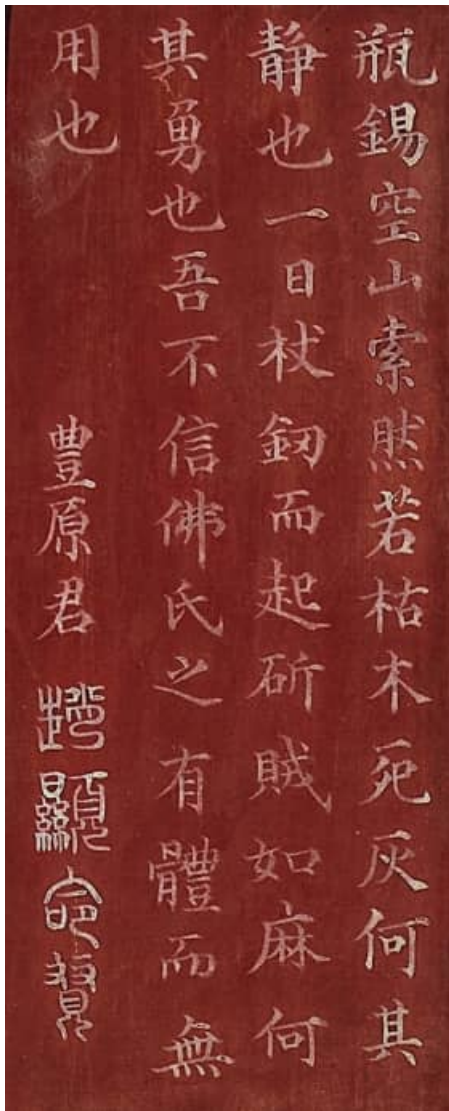 瓶錫空山索然若枯木死灰何其
靜也一日杖釰而起斫賊如麻何
其勇也吾不信佛氏之有體而無
用也
豊原君趙顯命贊